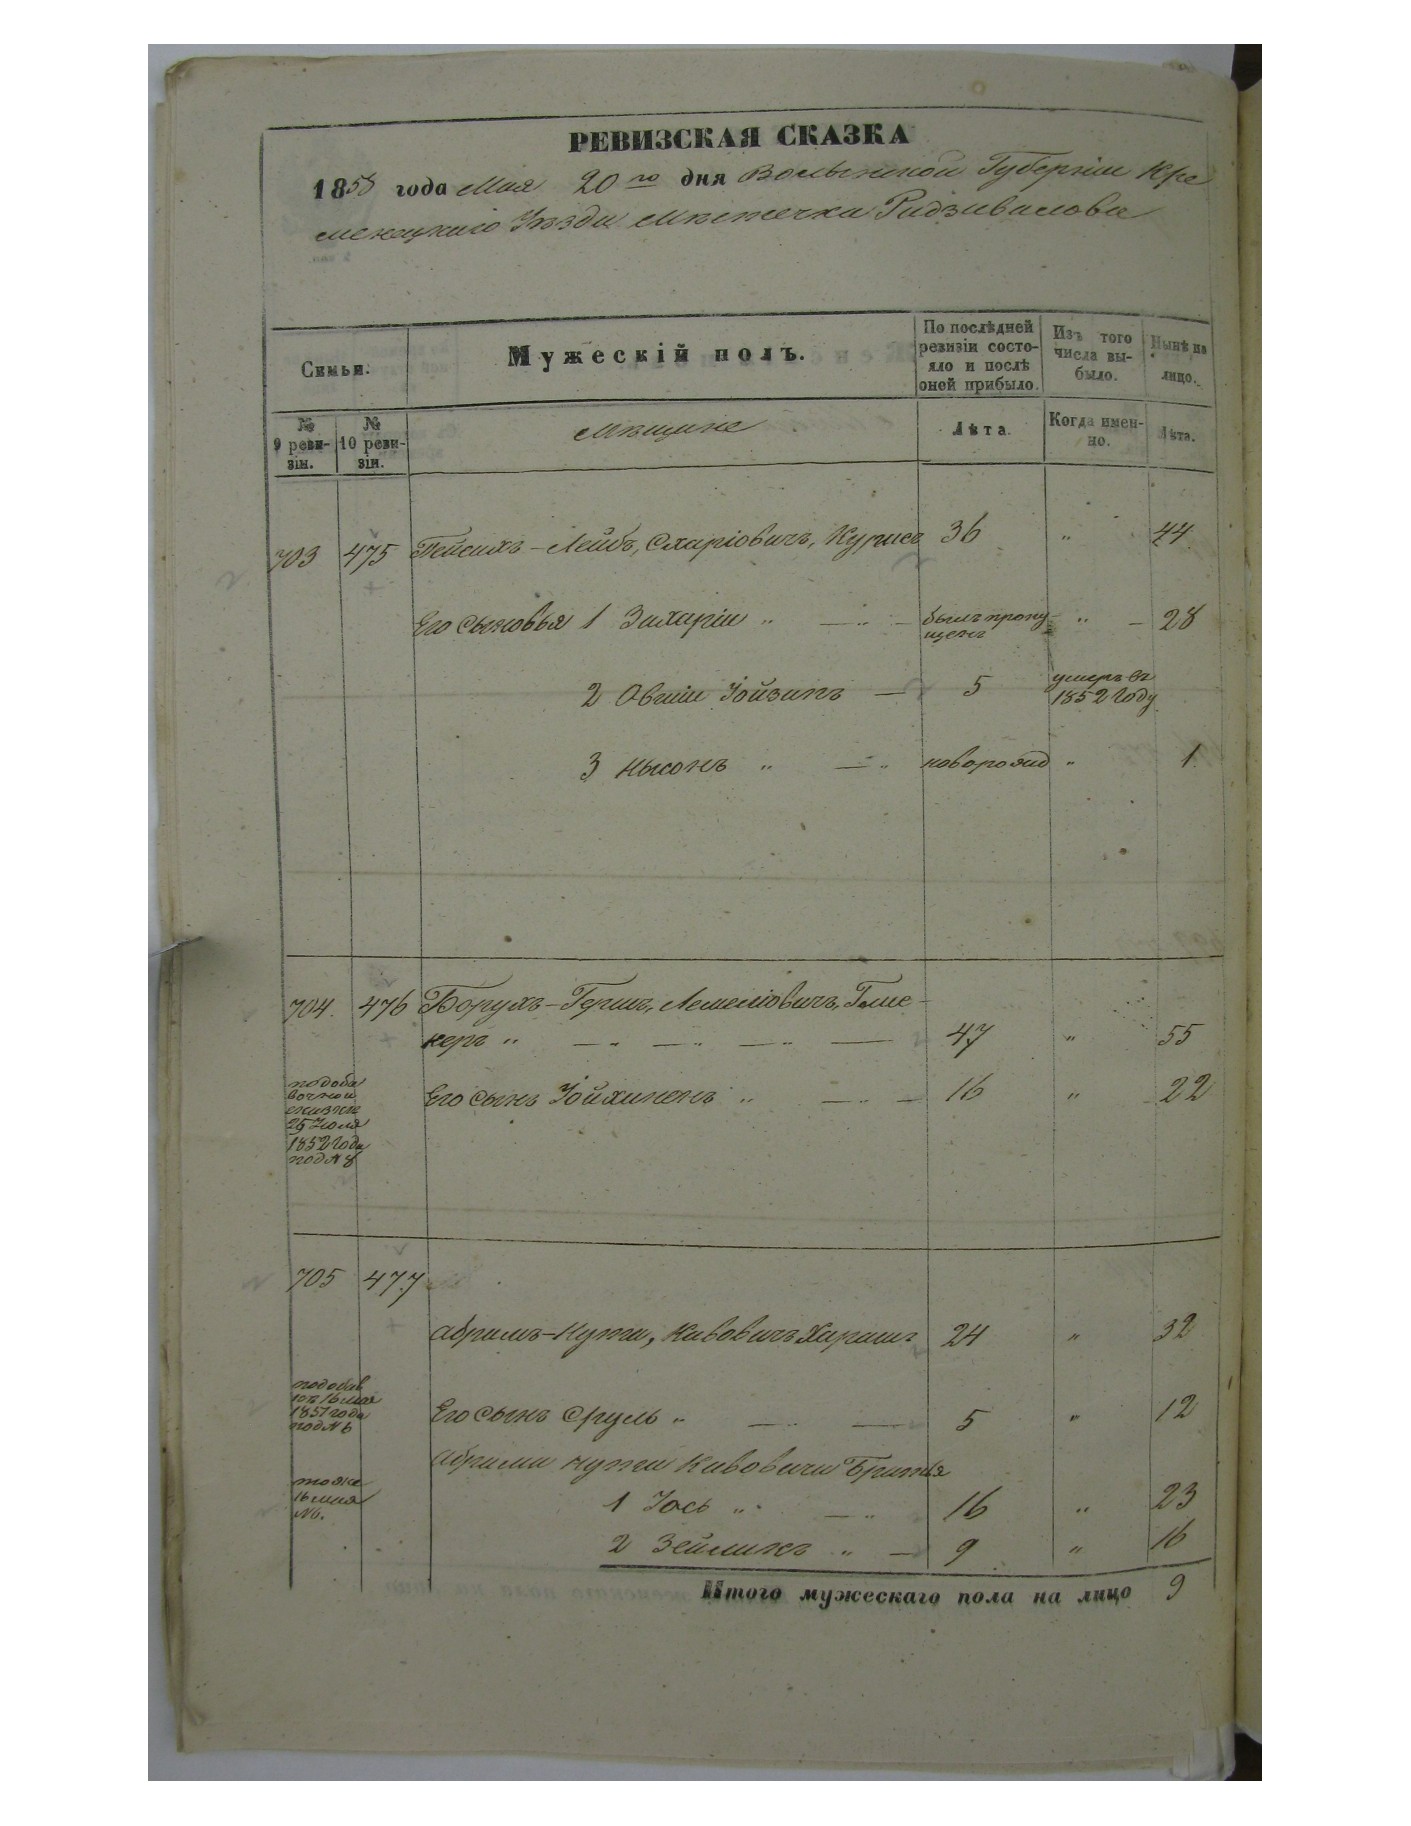 РЕВИЗСКАЯ СКАЗКА
1858 года Мая 20го дня Волынской Губерніи Кре
менецкаго Уѣзда Мѣстечка Радзивилова
Семьи.
Мужескій полъ.
По послѣдней ревизіи состояло и послѣ оней прибыло.
Изъ того числа выбыло.
Нынѣ на лицо.
№ 9 ревизіи.
№ 10 ревизіи.
Мѣщане
Лѣта.
Когда именно.
Лѣта.
703 475 Пейсахъ-Лейбъ, Схаріовичъ, 36 " 44
Его сыновья 1 Захарій " — " — былъ пропущенъ " — 28
2 Овшій Іойзипъ — 5 умеръ въ 1852 году
3 Нысонъ " — " новорожд " 1
704. 476 Борухъ-Гершъ, Лемеліовичъ, Голне-
керъ " — " — " — " — 47 " 55
подоба
вочной
сказке
25 Іюля
1852 Года
под № 8
Его сынъ Іойхиненъ " — " — 16 " 22
705 477
Абрамъ-Нута, Кивовичъ Харашъ 24 " 32
подобав
10й 16 мая
1851 года
под № 6
Его сынъ Сруль " — " — 5 " 12
Абрама Нута Кивовича Братья
тоже
16 мая
№6.
1 Іось " — " 16 " 23
2 Зейликъ " — 9 " 16
Итого мужескаго пола на лицо 9